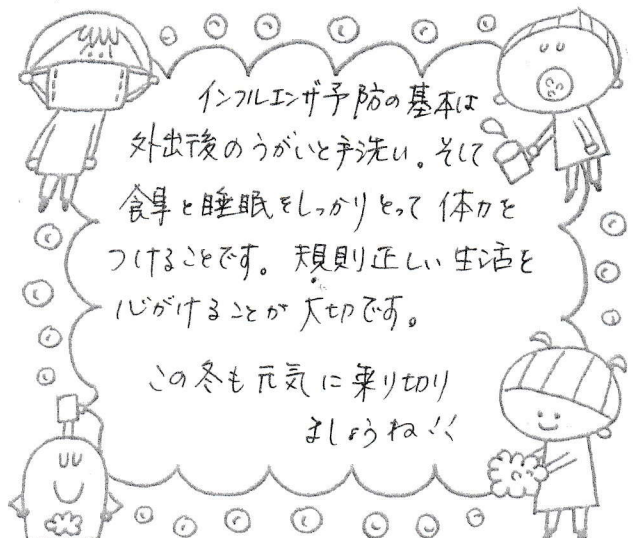 インフルエンザ予防の基本は
外出後のうがいと手洗い。そして
食事と睡眠をしっかりとって体力を
つけることです。規則正しい生活を
心がけることが大切です。
この冬も元気に乗り切り
ましょうね!!